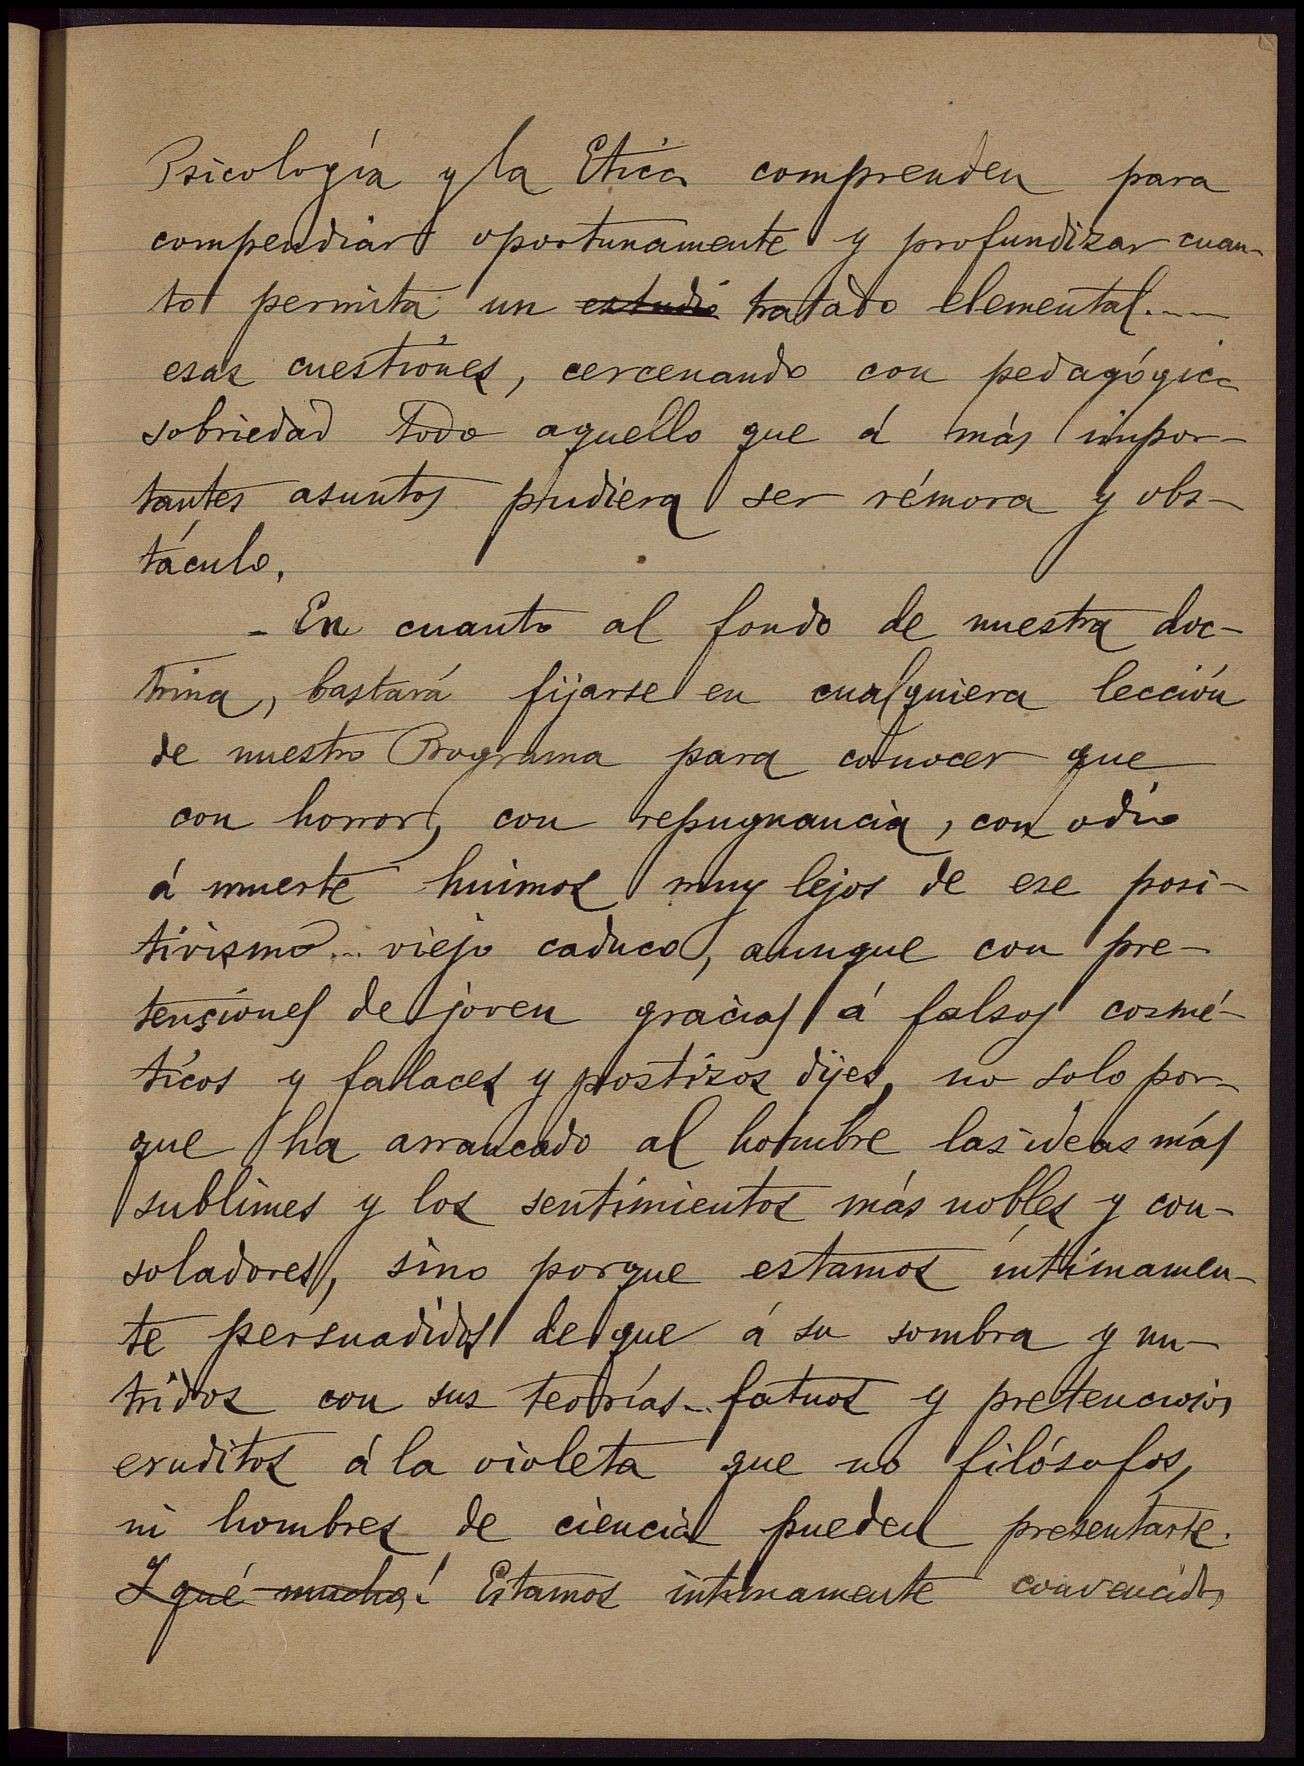 Psicología y la Etica comprenden para
compendiar oportunamente y profundizar cuan-
to permita un estudio tratado elemental....
esas cuestiones, cercenando con pedagógica
sobriedad todo aquello que á más impor-
tantes asuntos pudiera ser rémora y obs-
táculo.
- En cuanto al fondo de nuestra doc-
trina, bastará fijarse en cualquiera lección
de nuestro Programa para conocer que
con horror, con repugnancia, con odio
á muerte huimos muy lejos de ese posi-
tivismo... viejo caduco, aunque con pre-
tensiones de joven gracias á falsos cosmé-
ticos y falaces y postizos dijes, no solo por-
que ha arrancado al hombre las ideas más
sublimes y los sentimientos más nobles y con-
soladores, sino porque estamos íntimamen-
te persuadidos de que á su sombra y nu-
tridos con sus teorías... fatuos y pretenciosos
eruditos á la violeta que no filósofos,
ni hombres de ciencia pueden presentarse.
Y qué mucho! Estamos intimamente convencidos